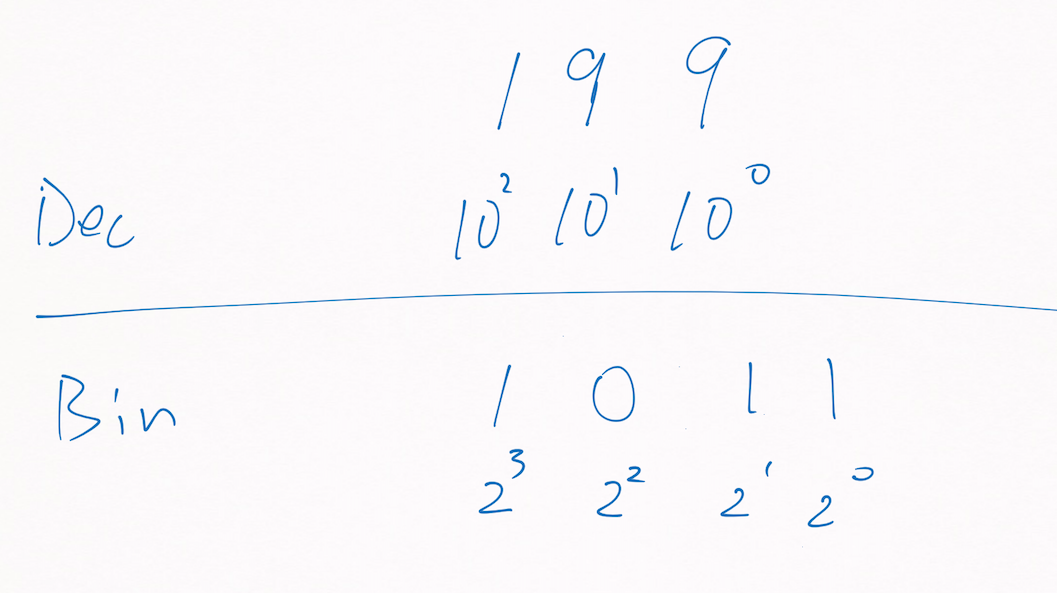 1 9 9
Dec 10² 10¹ 10⁰
Bin 1 0 1 1
2³ 2² 2¹ 2⁰